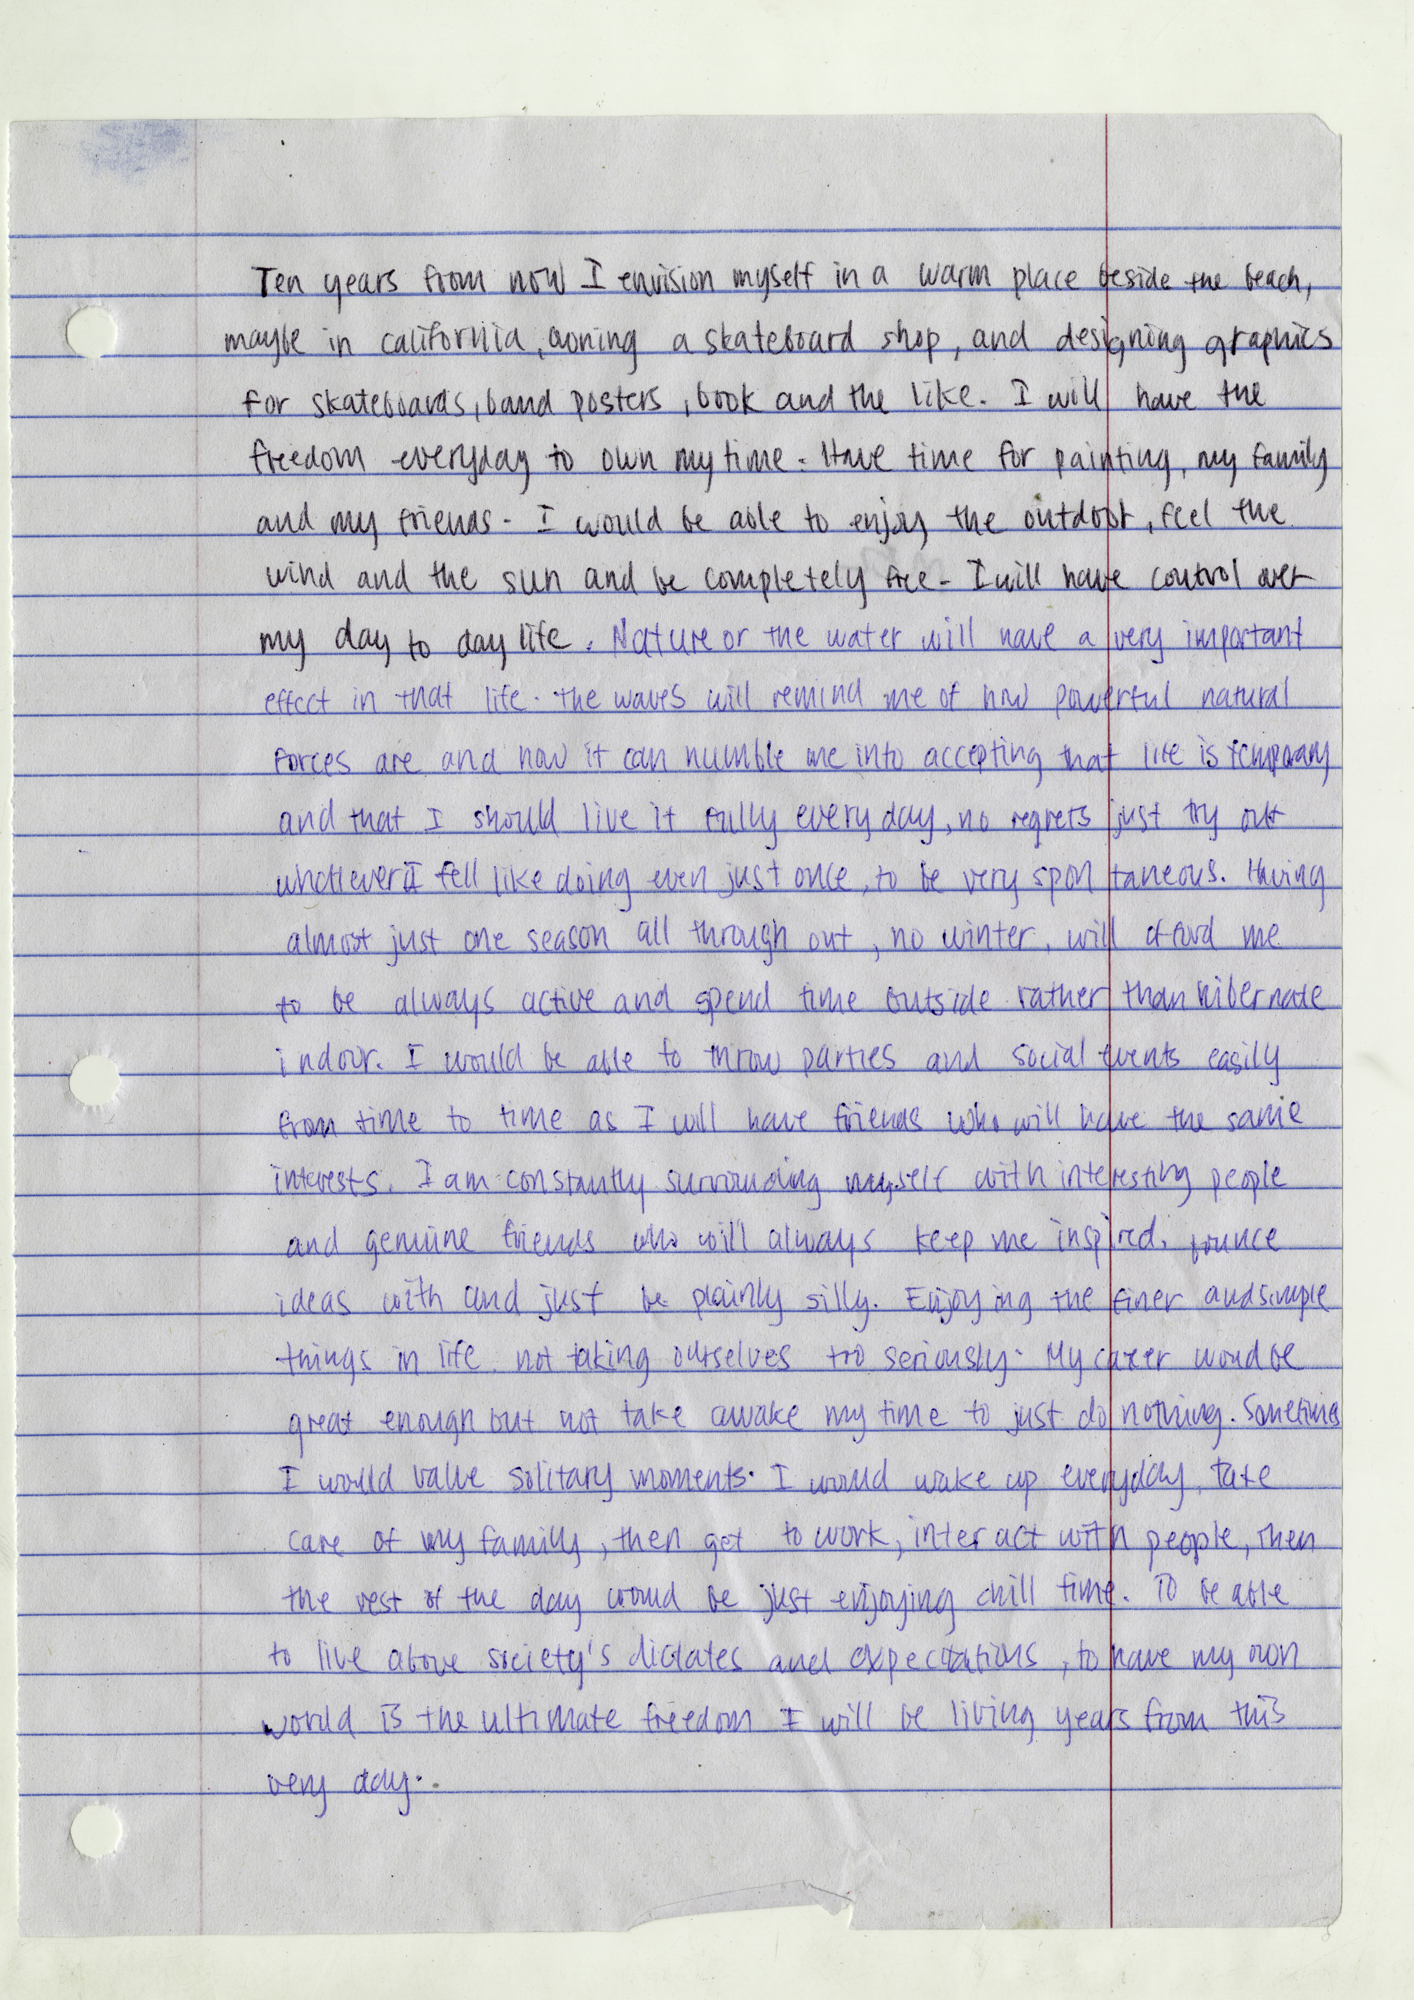 Ten years from now I envision myself in a warm place beside the beach,
maybe in california, owning a skateboard shop, and designing graphics
for skateboards, band posters, book and the like. I will have the
freedom everyday to own my time. Have time for painting, my family
and my friends. I would be able to enjoy the outdoor, feel the
wind and the sun and be completely free. I will have control over
my day to day life. Nature or the water will have a very important
effect in that life. The waves will remind me of how powerful natural
forces are and how it can humble me into accepting that life is temporary
and that I should live it fully every day, no regrets just try out
whatever I fell like doing even just once, to be very spontaneous. Having
almost just one season all through out, no winter, will afford me
to be always active and spend time outside rather than hibernate
indoor. I would be able to throw parties and social events easily
from time to time as I will have friends who will have the same
interests. I am constantly surrounding myself with interesting people
and genuine friends who will always keep me inspired, bounce
ideas with and just be plainly silly. Enjoying the finer and simple
things in life, not taking ourselves too seriously. My career would be
great enough but not take awake my time to just do nothing. Sometimes
I would value solitary moments. I would wake up everyday, take
care of my family, then get to work, interact with people, then
the rest of the day would be just enjoying chill time. To be able
to live above society's dictates and expectations, to have my own
world is the ultimate freedom I will be living years from this
very day.